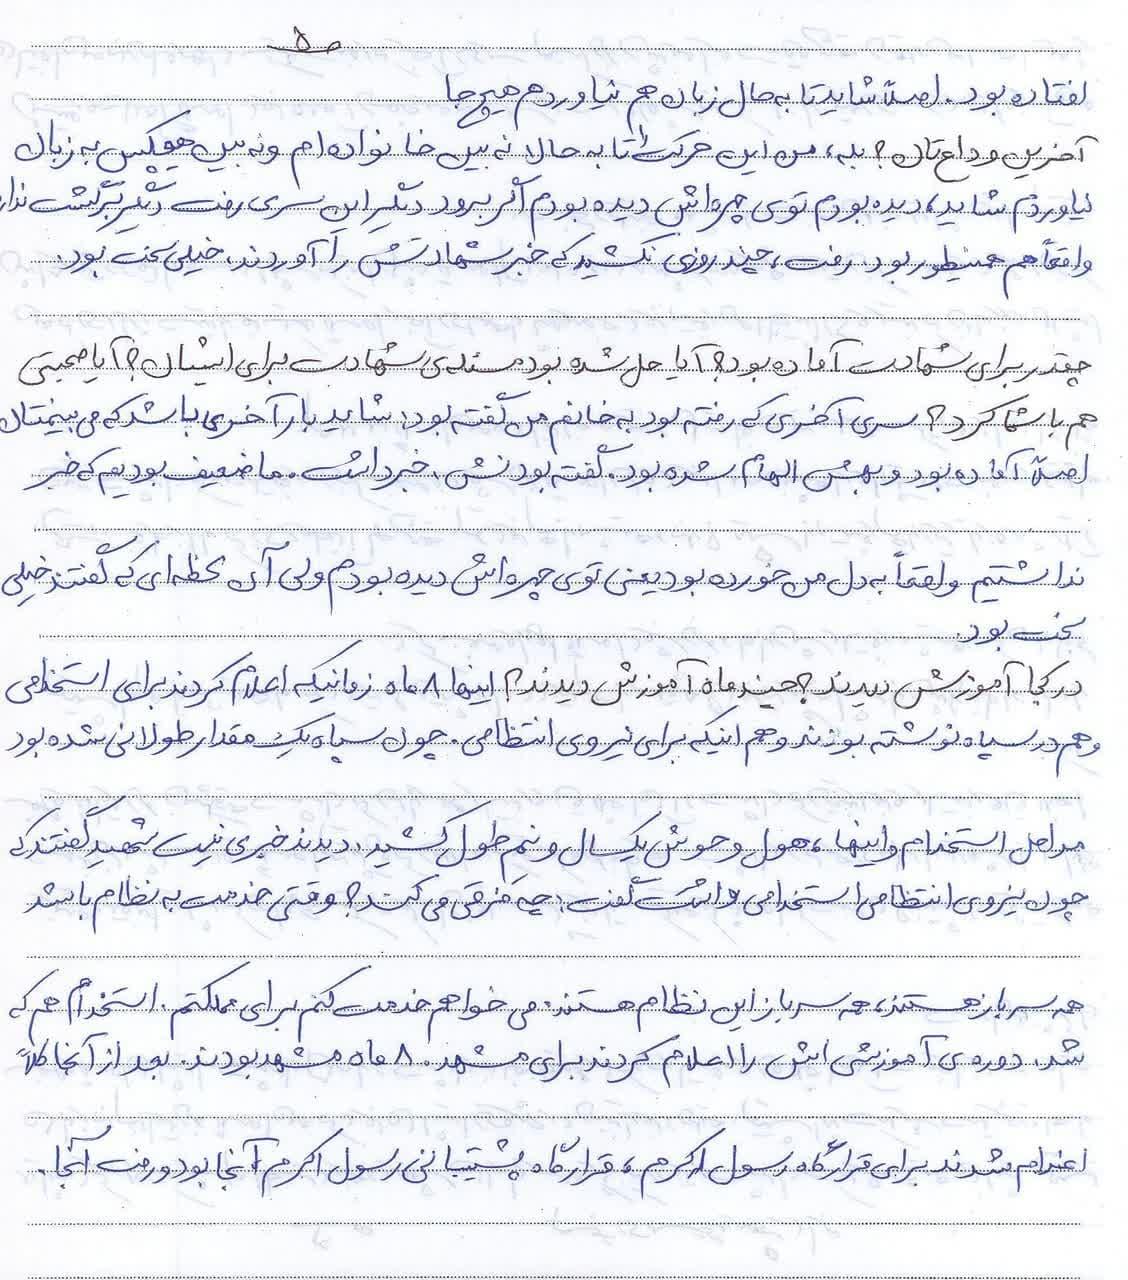 ص۵
افتاده بود. اصلاً شاید تا به حال زبان هم نیاوردم هیچ جا
آخرین وداع تان؟ بله، من این حرکت را تا به حالا نه بین خانواده ام و نه بین هیچکس به زبان
نیاوردم شاید، دیده بودم توی چهره اش دیده بودم اگر برود دیگر این سری رفت دیگر برگشت ندارد
واقعاً هم همینطور بود. رفت، چند روزی نکشید که خبر شهادتش را آوردند. خیلی سخت بود.
چقدر برای شهادت آماده بود؟ آیا حل شده بود مسئله ی شهادت برای ایشان؟ آیا صحبتی
هم با شما کرد؟ سری آخری که رفته بود به خانم من گفته بود: شاید بار آخری باشد که می بینمتان
اصلاً آماده بود و بهش الهام شده بود. گفته بودنش. خبر داشت. ما ضعیف بودیم که خبر
نداشتیم. واقعاً به دل من خورده بود یعنی توی چهره اش دیده بودم ولی آن لحظه ای که گفتند خیلی
سخت بود.
در کجا آموزش دیدند؟ چند ماه آموزش دیدند؟ اینها ۸ ماه زمانیکه اعلام کردند برای استخدامی
و هم در سپاه نوشته بودند و هم اینکه برای نیروی انتظامی. چون سپاه یک مقدار طولانی شده بود
مراحل استخدام و اینها، هول و حوش یکسال و نیم طول کشید. دیدند خبری نیست شهید گفتند که
چون نیروی انتظامی استخدامی داشت گفت: چه فرقی می کند؟ وقتی خدمت به نظام باشد
همه سرباز هستند، همه سرباز این نظام هستند. می خواهم خدمت کنم برای مملکتم. استخدام هم که
شد. دوره ی آموزشی اش را اعلام کردند برای مشهد. ۸ ماه مشهد بودند. بعد از آنجا کلاً
اعزام شدند برای قرارگاه رسول اکرم، قرارگاه پشتیبانی رسول اکرم آنجا بود و رفت آنجا.